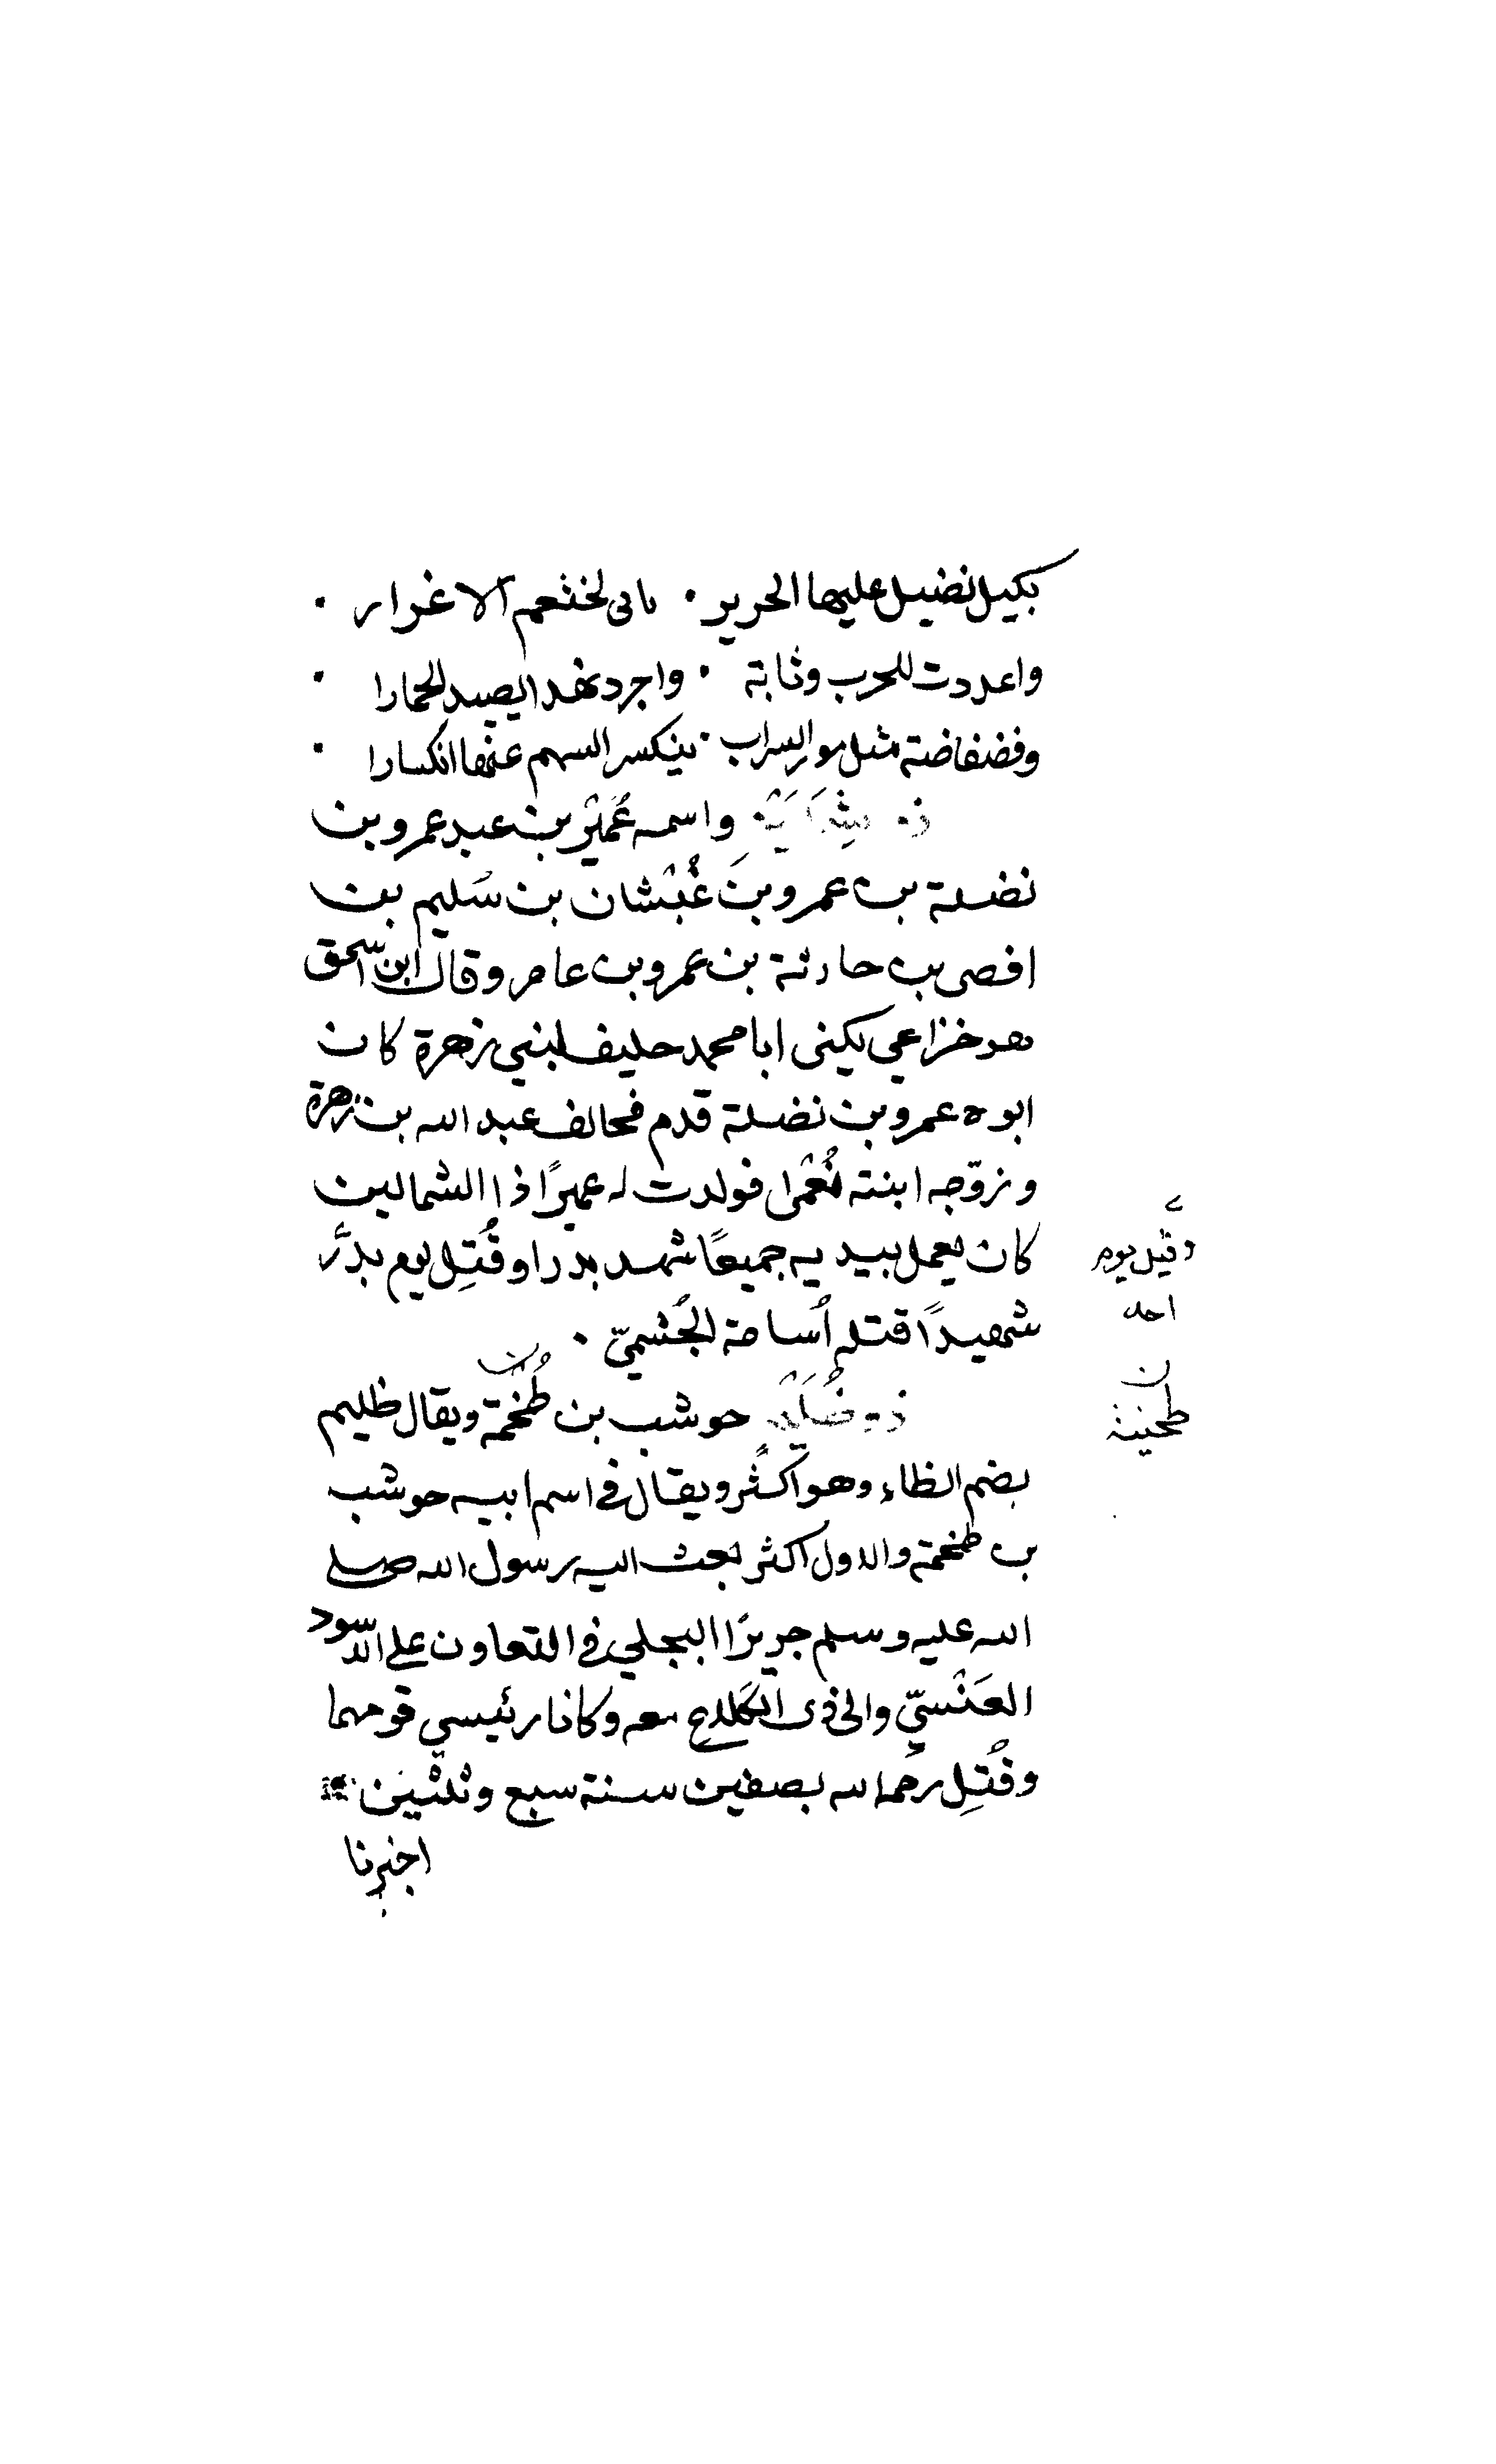 بكيل نضيل عليها الحرير · يابى لخثعم الا غرار ·
واعددت للحرب وثابة · واجرد نهدا يصيد الحمارا ·
وفضفاضة مثل مور السراب · ينكسر السهم عنها انكسارا ·
واسمه عُمَيْر بن عبد عمرو بن
نضلة بن عمرو بن غُبْشان بن سُليم بن
افصى بن حارثة بن عمرو بن عامر وقال ابن اسحق
هو خزاعي يكنى ابا محمد حليف لبني زهرة كان
ابوه عمرو بن نضلة قدم فحالف عبد الله بن زهرة
وزوّجه ابنته نُعْمى فولدت له عميرًا ذا الشمالين
كان يعمل بيديه جميعًا شهد بدرا وقُتِل يوم بدر
وقيل يوم
احد
شهيدًا قتله أُسامة الجُشميّ ·
ذو ظُلَيْم حوشب بن طُخْمة ويقال ظليم
ن
طخية
بضم الظاء وهو اكثر ويقال في اسم ابيه حوشب
بن طخمة والاول اكثر بعث اليه رسول الله صلى
الله عليه وسلم جريرًا البجلي في التعاون على الاسود
العَنْسيّ والى ذي الكلاع معه وكانا رئيسي قومهما
وقُتِل رحمه الله بصفين سنة سبع وثلثين
اخبرنا